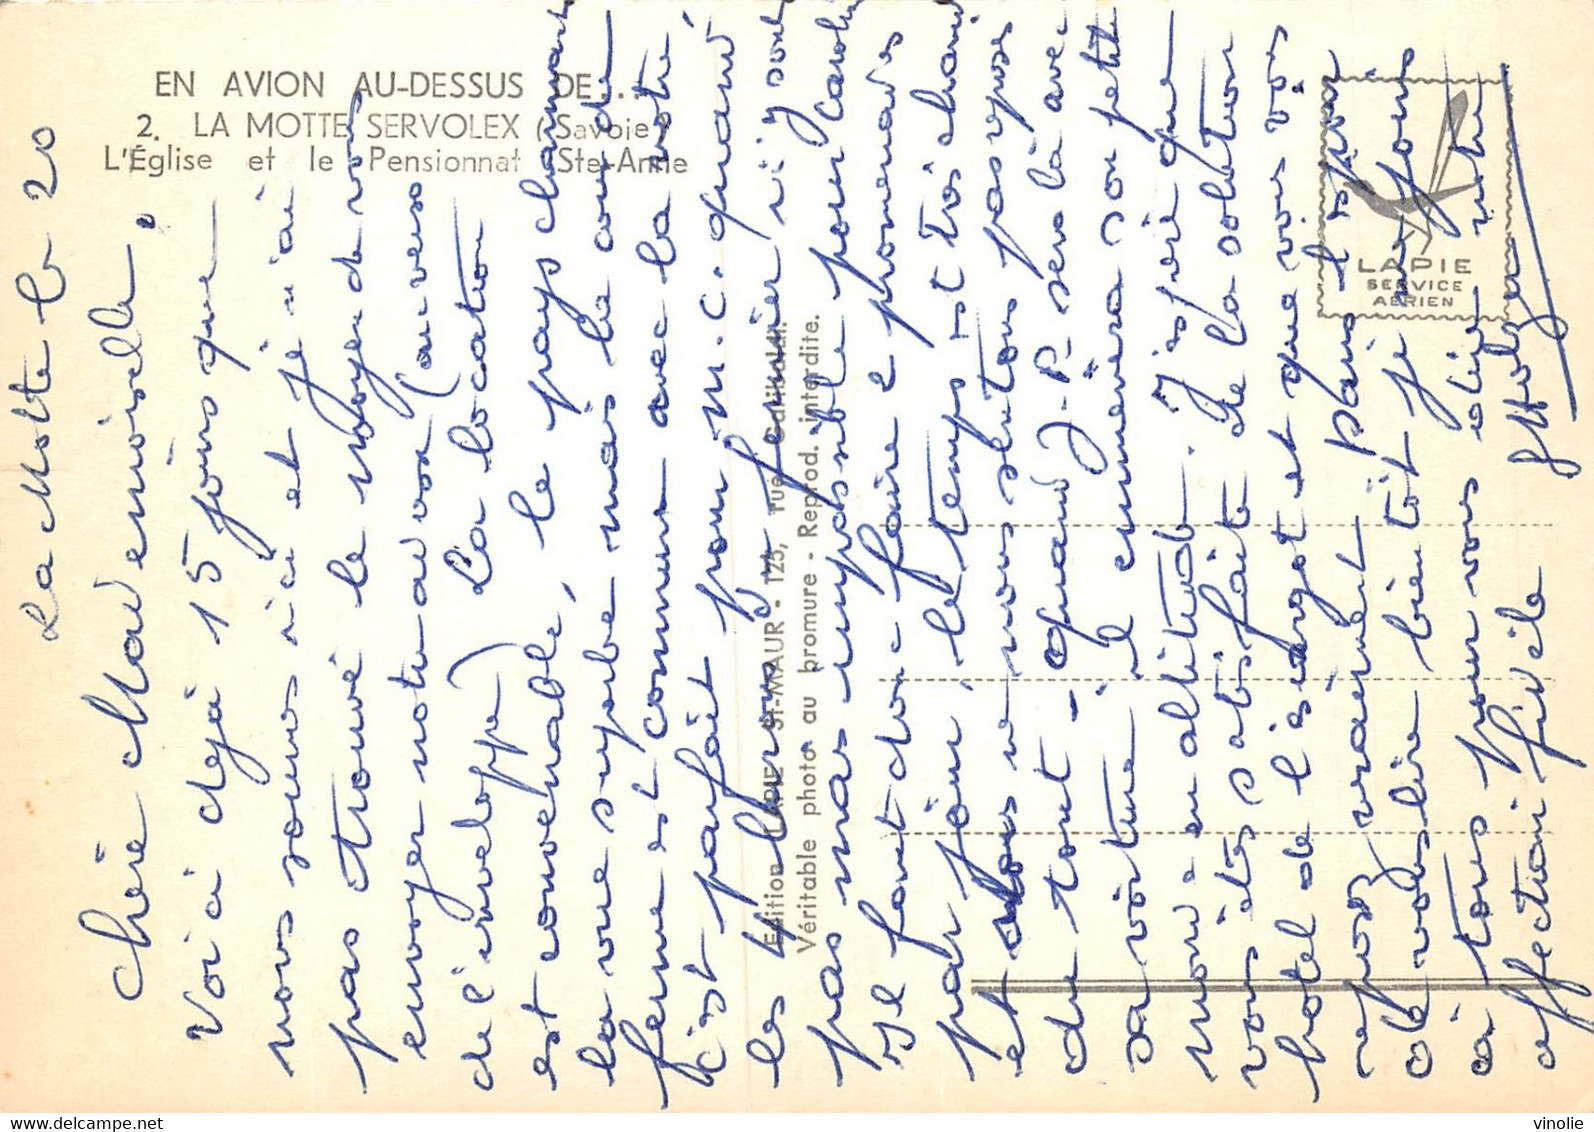 EN AVION AU-DESSUS DE...
2. LA MOTTE SERVOLEX (Savoie)
L'Église et le Pensionnat Ste-Anne
LAPIE
SERVICE
AÉRIEN
Edition LAPIE St-MAUR - 125, rue Garibaldi.
Véritable photo au bromure - Reprod. interdite.
La Motte le 20
Chère Mademoiselle,
Voici dejà 15 jours que
nous sommes ici et je n'ai
pas trouvé le moyen de vous
envoyer notre adresse (au verso
de l'enveloppe) La location
est convenable, le pays charmant
la vue superbe mais la cour de
ferme est commune avec la notre
c'est parfait pour M. C. quand
les 4 fermier n'y sont
pas mais impossible pour Caroline
Il faut donc faire 2 promenades
par jour, le temps est très chaud
et nous ne nous sentons pas reposés
du tout - quand J-P sera là avec
sa voiture il emmènera son petit
monde en altitude. J'espère que
vous êtes satisfaite de la solution
hotel de l'escargot et que vous vous
reposez vraiment Dans l'espoir
de vous lire bientôt je me joins
à tous pour vous dire notre
affection fidèle